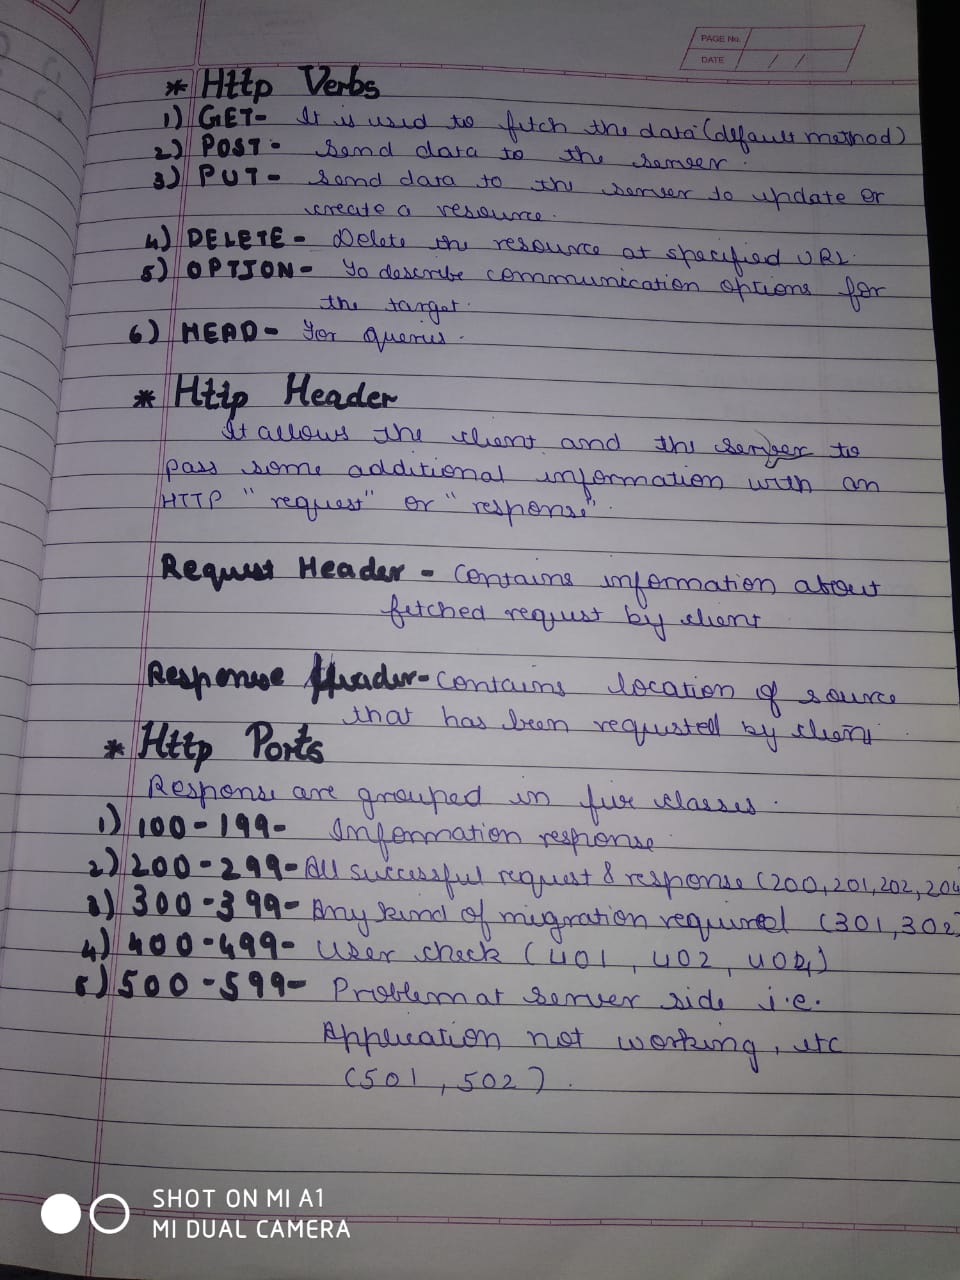 PAGE No.
DATE / /
* Http Verbs
1) GET- It is used to fetch the data (default method)
2) POST- Send data to the server.
3) PUT- Send data to the server to update or
create a resource.
4) DELETE- Delete the resource at specified URL.
5) OPTION- To describe communication options for
the target.
6) HEAD- For queries.
* Http Header
It allows the client and the server to
pass some additional information with an
HTTP "request" or "response".
Request Header - Contains information about
fetched request by client
Response Header- Contains location of source
that has been requested by client.
* Http Ports
Response are grouped in five classes.
1) 100-199- Information response.
2) 200-299- All successful request & response (200, 201, 202, 204
3) 300-399- Any kind of migration required (301, 302)
4) 400-499- User check (401, 402, 404)
5) 500-599- Problem at server side i.e.
Application not working, etc
(501, 502).
SHOT ON MI A1
MI DUAL CAMERA